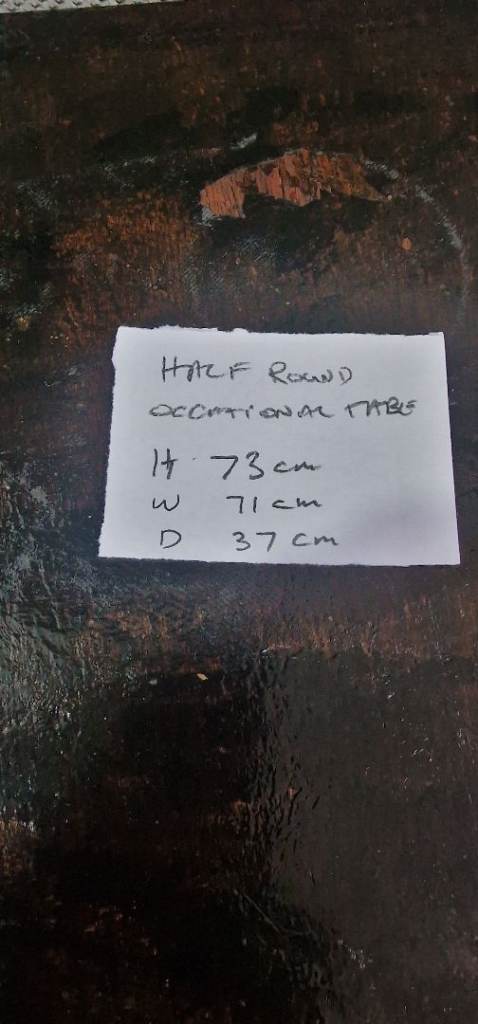 HALF ROUND
OCCATIONAL TABLE
H 73 cm
W 71 cm
D 37 cm